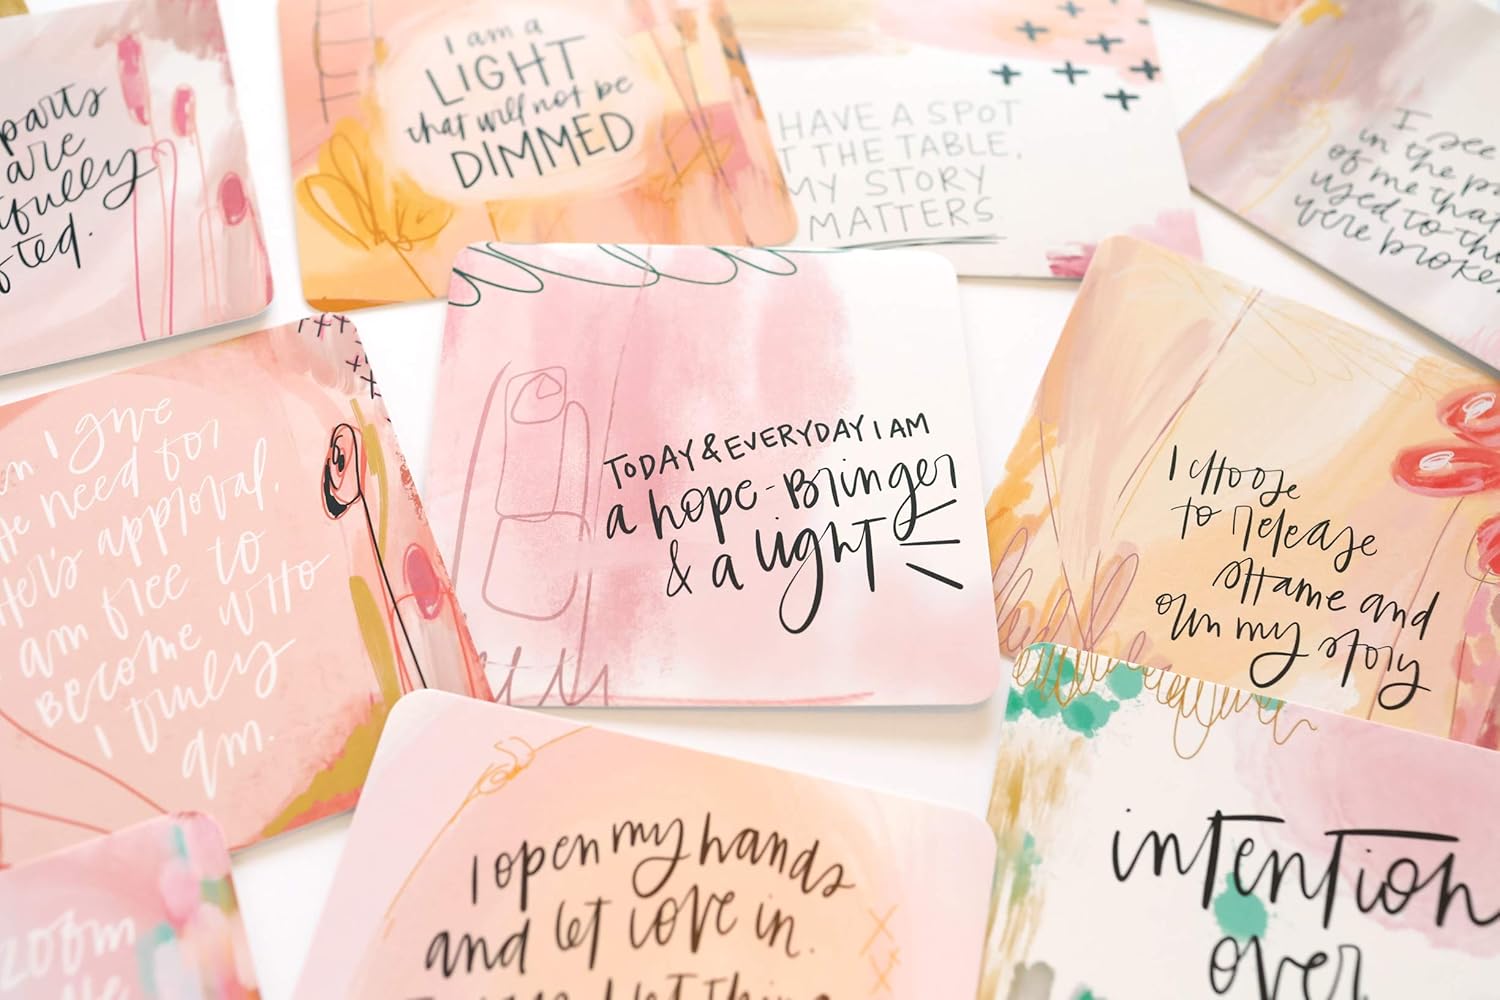 parts
are
I am a
LIGHT
that will not be
DIMMED
HAVE A SPOT
THE TABLE.
MY STORY
MATTERS
I see
in the
of me that
used to
were
I give
need for
approval.
am free to
become who
I truly
am.
TODAY & EVERYDAY I AM
a hope-Bringer
& a light
I choose
to release
shame and
own my story
I open my hands
and let love in.
intention
over
zoom